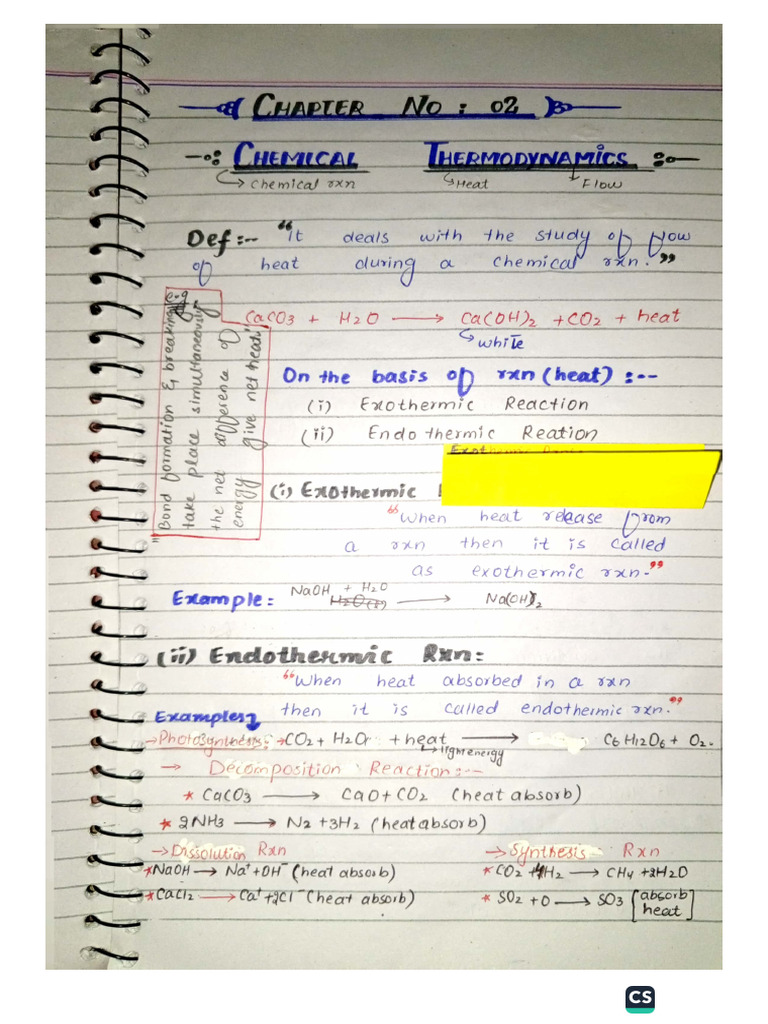 CHAPTER NO : 02
CHEMICAL THERMODYNAMICS
Chemical rxn Heat Flow
Def :-- "It deals with the study of flow
of heat during a chemical rxn."
e.g
CaCO3 + H2O → Ca(OH)2 + CO2 + heat
white
"Bond formation & breaking
take place simultaneously
the net difference of
energy give net heat"
On the basis of rxn (heat) :--
(i) Exothermic Reaction
(ii) Endothermic Reation
(i) Exothermic
"When heat release from
a rxn then it is called
as exothermic rxn."
Example: NaOH + H2O → Na(OH)2
H2O(l)
(ii) Endothermic Rxn:
"When heat absorbed in a rxn
then it is called endothermic rxn."
Examples
→ Photosynthesis: → CO2 + H2O + heat → C6H12O6 + O2.
light energy
→ Decomposition Reaction :--
* CaCO3 → CaO + CO2 (heat absorb)
* 2NH3 → N2 + 3H2 (heat absorb)
→ Dissolution Rxn
* NaOH → Na+ + OH- (heat absorb)
* CaCl2 → Ca+ + 2Cl- (heat absorb)
→ Synthesis Rxn
* CO2 + 4H2 → CH4 + 2H2O
* SO2 + O → SO3 [absorb
heat]
CS